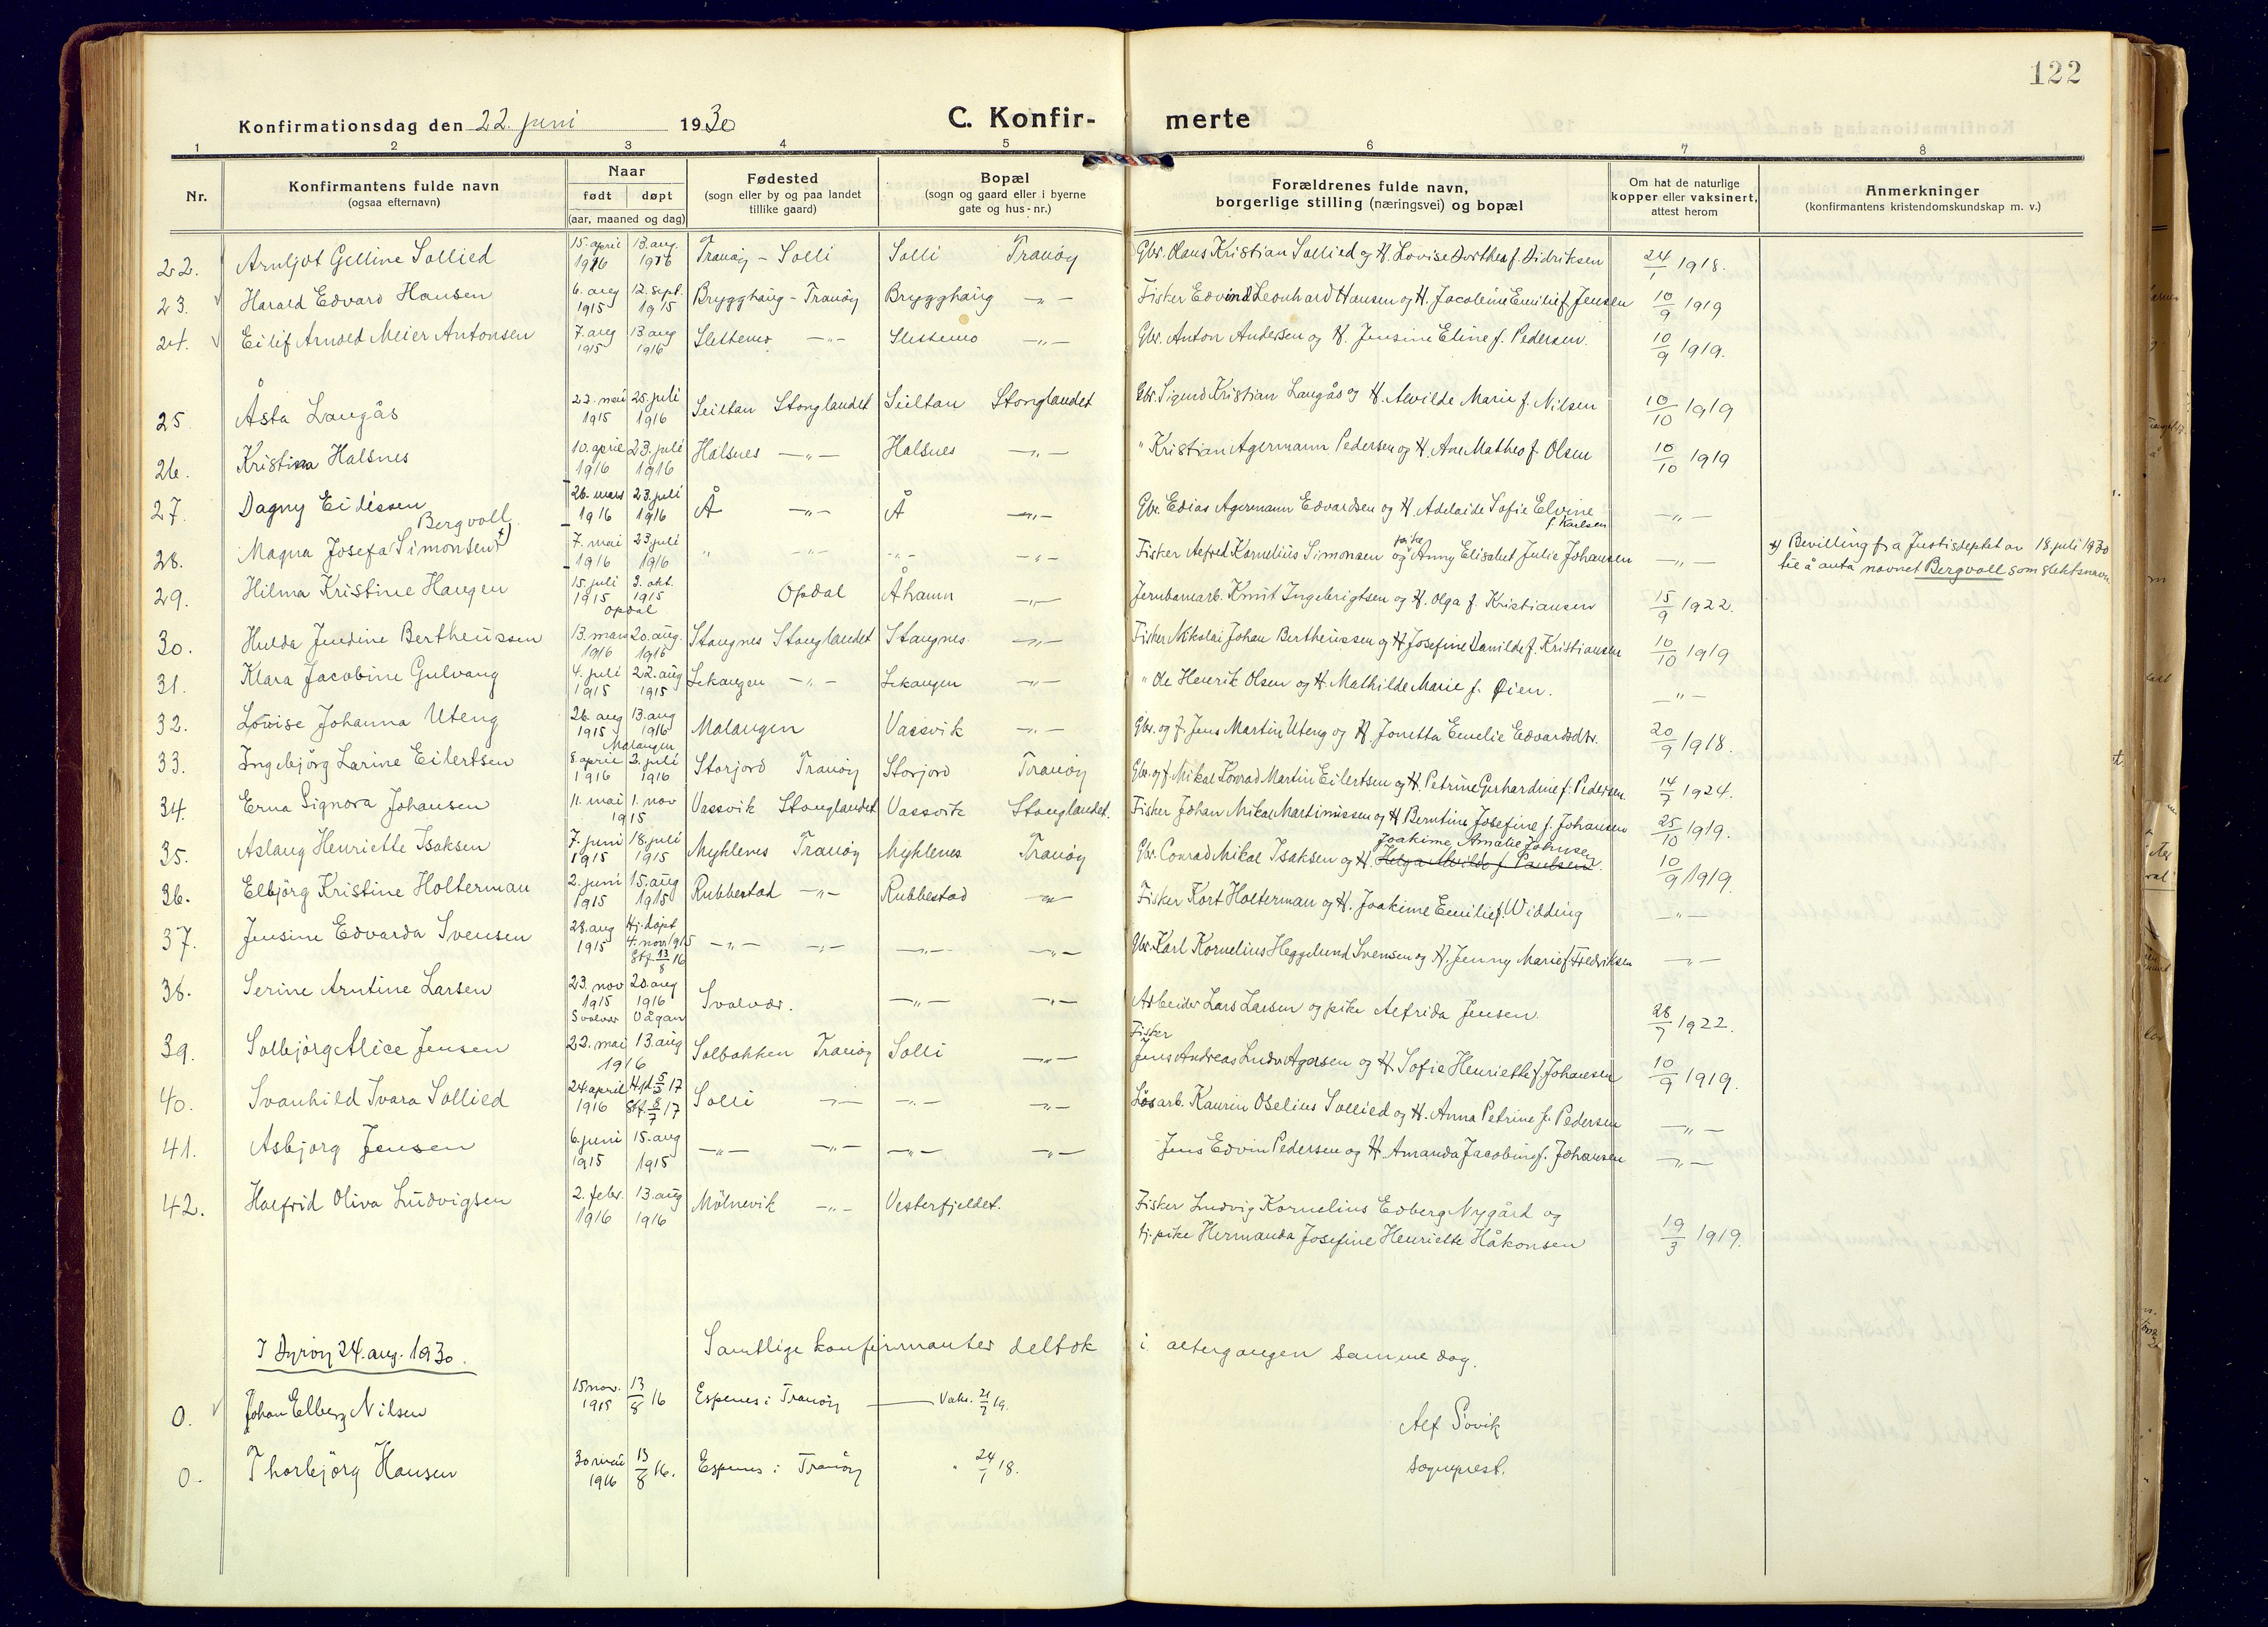 122
Konfirmationsdag den 22. juni 1930 C. Konfir- merte
1 2 3 4 5 6 7 8
Nr. Konfirmantens fulde navn (ogsaa efternavn) Naar født døpt (aar, maaned og dag) Fødested (sogn eller by og paa landet tillike gaard) Bopæl (sogn og gaard eller i byerne gate og hus-nr.) Forældrenes fulde navn, borgerlige stilling (næringsvei) og bopæl Om hat de naturlige kopper eller vaksinert, attest herom Anmerkninger (konfirmantens kristendomskundskap m. v.)
22. Arnljot Gelline Sollied 15. april 1916 13. aug. 1916 Tranøy - Solli Solli Tranøy Gbr. Olaus Kristian Sollied og H. Lovise Dorthea f. Didriksen 24/1 1918.
23. Harald Edvard Hansen 6. aug 1915 12. sept. 1915 Brygghaug - Tranöy Brygghaug -„- Fisker Edvind Leonhard Hansen og H. Jacobine Emilie f. Jensen 10/9 1919
24. Eilif Arnold Meier Antonsen 7. aug 1915 13 aug 1916 Slettemo -„- Slettemo -„- Gbr. Anton Andersen og H. Jensine Eline f. Pedersen. 10/9 1919.
25. Åsta Langås 22. mai 1915 25. juli 1916 Seiltan Stonglandet Seiltan Stonglandet Gbr. Sigurd Kristian Langås og H. Alvilde Marie f. Nilsen 10/10 1919
26. Kristina Halsnes 10. april 1916 23. juli 1916 Halsnes -„- Halsnes -„- " Kristian Agermann Pedersen og H. Ane Mathea f. Olsen 10/10 1919
27. Dagny Eidissen 26. mars 1916 23. juli 1916 Å -„- Å -„- Gbr. Edias Agermann Edvardsen og H. Adelaide Sofie Elvine f. Karlsen -„-
28. Magna Josefa Simonsen †) Bergvoll 7. mai 1916 23 juli 1916 " -„- -„- -„- Fisker Alfred Kornelius Simonsen og pike Anny Elisabet Julie Johansen -„- †) Bevilling fra Justisdeptet av 18. juli 1930 til å anta navnet Bergvoll som slektsnavn
29. Hilma Kristine Haugen 15. juli 1915 3. okt. 1915 Opdal Opdal Åhamn -„- Jernbanearb. Knut Ingebrigtsen og H. Olga f. Kristiansen 15/9 1922.
30. Hulda Jendine Bertheussen 13. mars 1916 20. aug. 1916 Stangnes Stonglandet Stangnes -„- Fisker Nikolai Johan Bertheussen og H. Josefine Danilde f. Kristiansen 10/10 1919
31. Klara Jacobine Gulvang 4. juli 1915 22. aug 1915 Lekangen -„- Lekangen -„- " Ole Henrik Olsen og H. Mathilde Marie f. Øien. -„-
32. Lovise Johanna Uteng 26. aug 1915 13. aug 1916 Malangen Malangen Vassvik -„- Gbr. og f. Jens Martin Uteng og H. Jonetta Emelie Edvardsdtr. 20/9 1918.
33. Ingebjörg Larine Eilertsen 8. april 1916 2. juli 1916 Storjord Tranöy Storjord Tranöy Gbr. og f. Mikal Konrad Martin Eilertsen og H. Petrine Gerhardine f. Pedersen. 14/7 1924.
34. Erna Signora Johansen 11. mai 1. nov 1915 Vassvik Stonglandet Vassvik Stonglandet. Fisker Johan Mikal Martinussen og H. Berntine Josefine f. Johansen 25/10 1919.
35. Aslaug Henriette Isaksen 7. juni 1915 18. juli 1915 Myklenes Tranöy Myklenes Tranöy Gbr. Conrad Mikal Isaksen og H. Helga Alvilde f. Paulsen. Joakime Amalie Johnsen 10/9 1919.
36. Elbjörg Kristine Holterman 2. juni 1915 15. aug 1915 Rubbestad -„- Rubbestad -„- Fisker Kort Holterman og H. Joakime Emilie f. Widding -„-
37. Jensine Edvarda Svensen 28. aug 1915 Hj. döpt 4. nov 1915 Stf. 13/8 16 -„- -„- -„- -„- Gbr. Karl Kornelius Heggelund Svensen og H. Jenny Marie f. Fredriksen -„-
38. Serine Arntine Larsen 23. nov 1915 Svolvær 20. aug 1916 Vågan Svolvær. -„- -„- Arbeider Lars Larsen og pike Alfrida Jensen. 28/7 1922.
39. Solbjörg Alice Jensen 22. mai 13. aug 1916 Solbakken Tranöy Solli -„- Fisker Jens Andreas Ludv. Agersen og H. Sofie Henriette f. Johansen 10/9 1919.
40. Svanhild Svara Sollied 24 april 1916 Hjd 5/3 17 Stf. 8/7 17 Solli -„- -„- -„- Løsarb. Kaurin Oselius Sollied og H. Anna Petrine f. Pedersen -„-
41. Asbjørg Jensen 6. juni 1915 15. aug 1915 -„- -„- -„- -„- Jens Edvin Pedersen og H. Amanda Jacobine f. Johansen -„-
42. Halfrid Oliva Ludvigsen 2. febr. 1916 13. aug 1916 Mölnevik -„- Vesterfjeldet. Fisker Ludvig Kornelius Edberg Nygård og
tj. pike Hermanda Josefine Henriette Håkonsen 19/3 1919.
Samtlige konfirmanter deltok i altergangen samme dag.
I Dyröy 24. aug. 1930.
0. Johan Elberg Nilsen 15 nov. 1915 13/8 16 Espenes i Tranöy Vaks. 21/7 19.
Alf Sövik
0. Thorbjörg Hansen 30 mai 1916 13/8 16. Espenes i Tranöy " 24/1 18.
sogneprest.